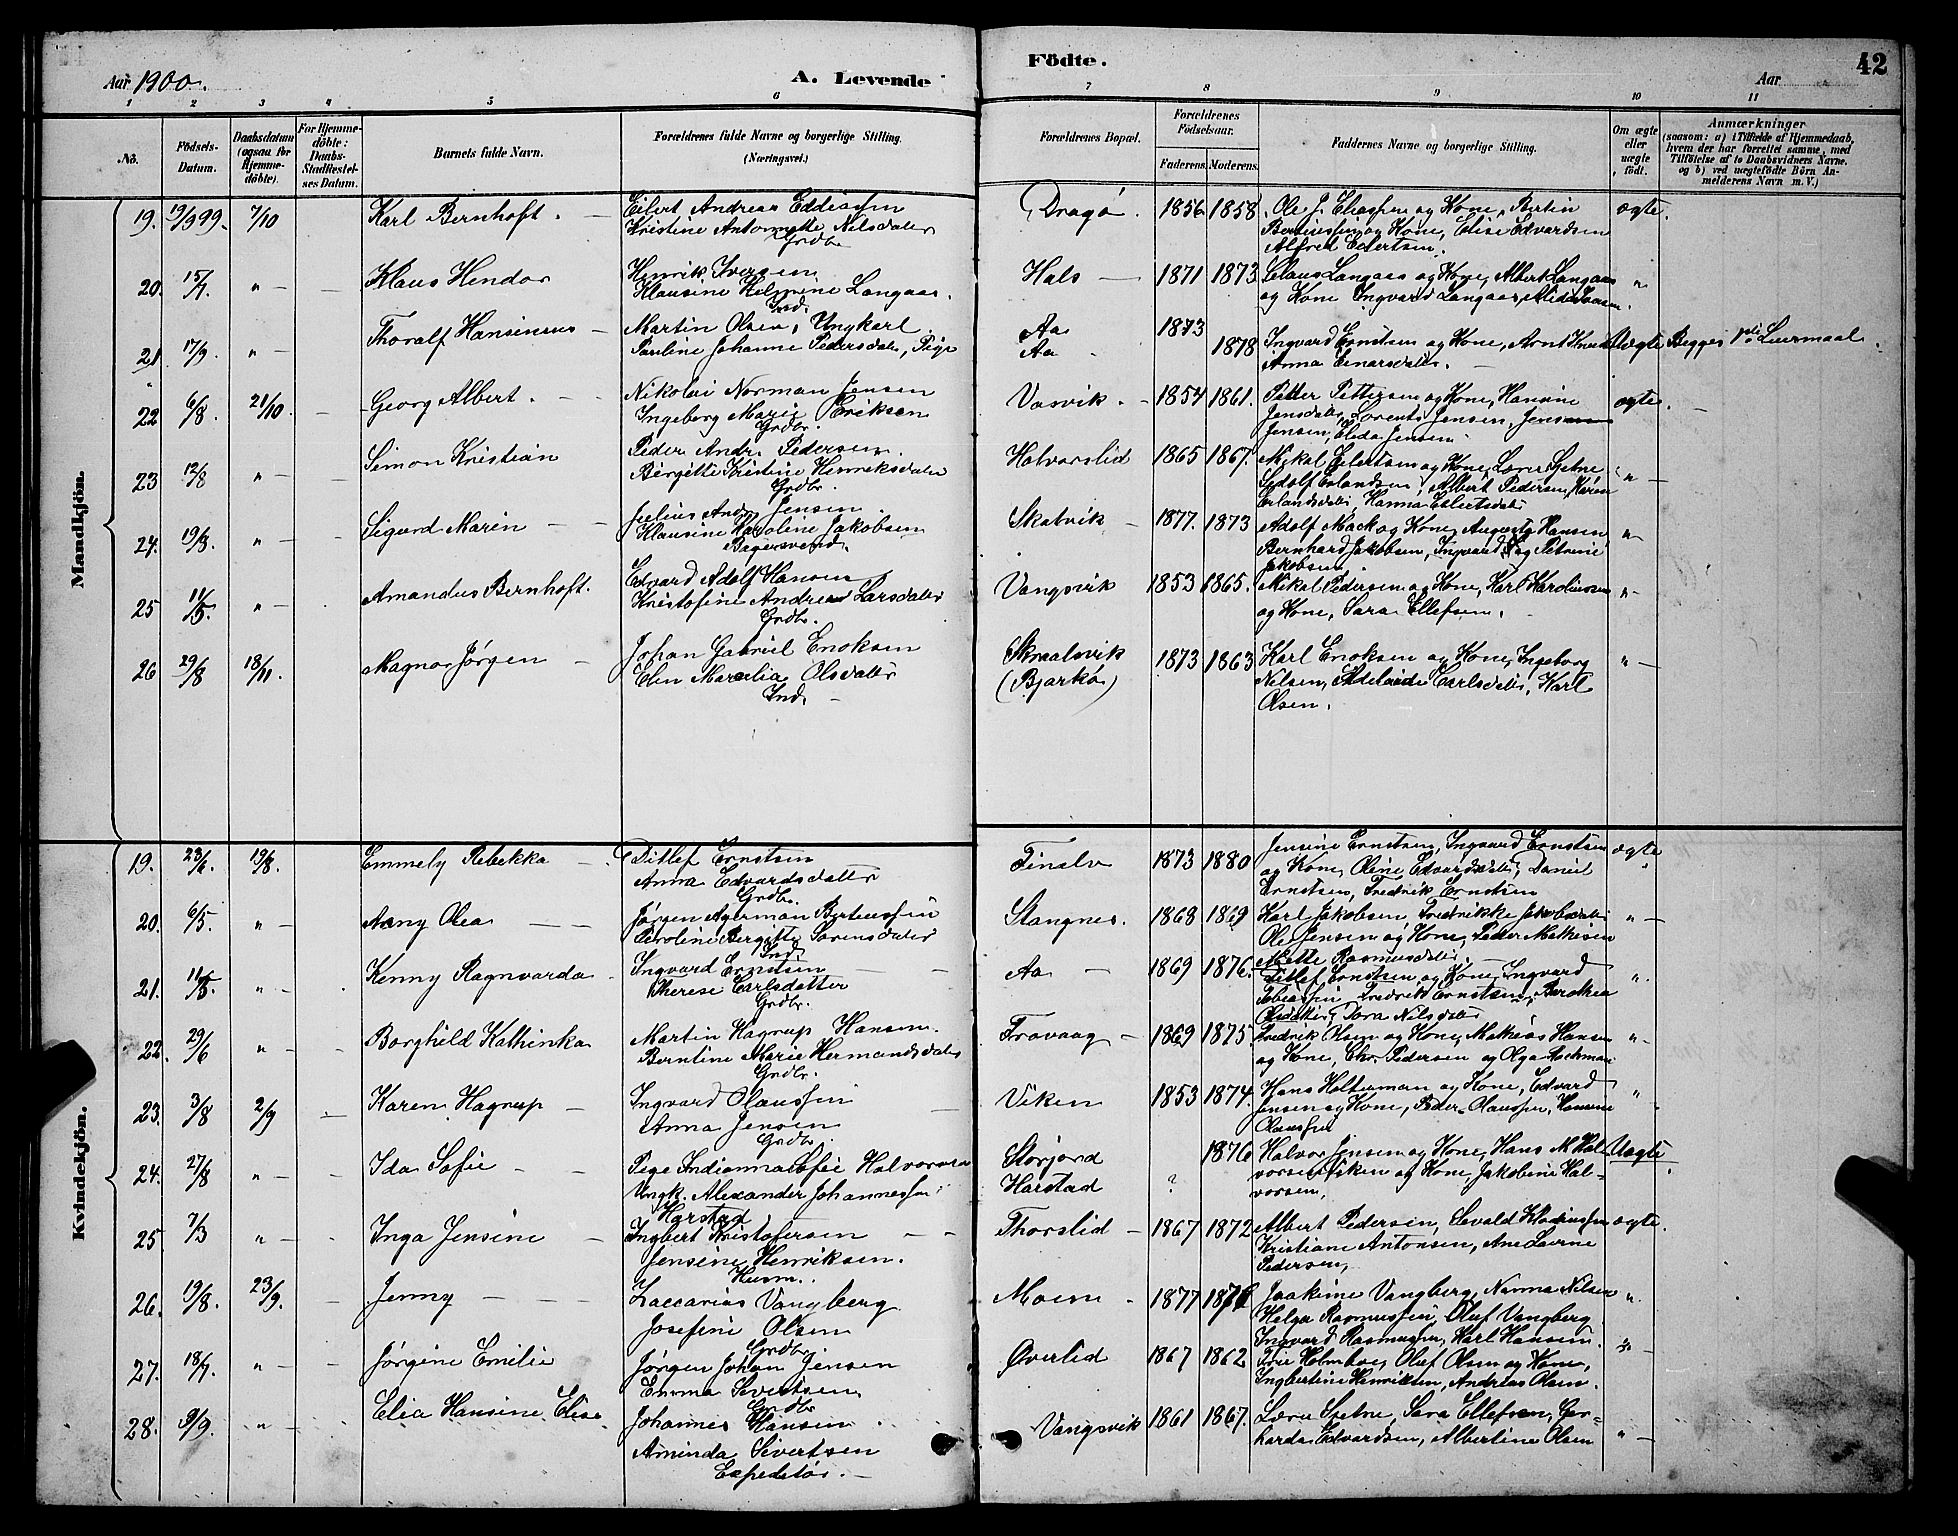 Aar 1900.
A. Levende
Födte.
Aar
42
1 2 3 4 5 6 7 8 9 10 11
No.
Födsels-Datum.
Daabsdatum (ogsaa for Hjemme-döbte).
For Hjemme-döbte: Daabs-Stadfæstel-ses Datum.
Barnets fulde Navn.
Forældrenes fulde Navne og borgerlige Stilling.
(Næringsvei.)
Forældrenes Bopæl.
Forældrenes Födselsaar.
Faderens. Moderens.
Faddernes Navne og borgerlige Stilling.
Om ægte eller uægte födt.
Anmærkninger
(saasom: a) i Tilfælde af Hjemmedaab, hvem der har forrettet samme, med Tilföielse af to Daabsvidners Navne. og b) ved uægtefödte Börn An-melderens Navn m. V.)
Mandkjön.
19. 19/9 99. 7/10 Karl Bernhoft.
Eilert Andreas Eddissen
Kristine Antonette Nilsdater
Grdbr.
Dragö. 1856 1858
Ole J. Eliassen og Kone, Bertin
Bertiniussen og Kone, Elise Edvardsen
Alfred Eilertsen.
ægte.
20. 15/7 " Klaus Hendor
Henrik Iversen
Klausine Helmine Langaas.
Ind.
Hals 1871 1873
Claus Langaas og Kone, Albert Langaas
og Kone Ingvard Langaas,
"
21. 17/9 " Thoralf Hansinius
Martin Olsen, Ungkarl
Pauline Johanne Pedersdater, Pige
Aa 1873
Aa 1878
Ingvard Ernstsen og Kone, Arnt
Anna Einarsdatter.
Uægte Begges 1ste Leiermaal.
22 6/8. 21/10. Georg Albert.
Nikolai Norman Jensen
Ingeborg Marie Eriksen
Grdbr.
Vasvik. 1854 1861.
Petter Pettersen og Kone, Hansine
Jensdatter, Lorents Jensen,
Jensen, Elida Jensen.
ægte.
23 12/8 " Simon Kristian
Peder Andr. Pedersen.
Birgitte Kristine Henriksdater
Grdbr.
Halvarslid 1865 1867.
Mikal Eilertsen og Kone, Lærer Sjetne
Erlandsen, Albert Pedersen, Karen
Erlandsdatter, Hanna Eilertsdatter
"
24. 19/8. " Sigurd Marin
Julius Andr. Jensen.
Klausine Karoline Jakobsen
Bagersvend.
Skatvik 1877. 1873
Adolf Mack og Kone, August Hansen
Bernhard Jakobsen, Ingvard og Petrine
Jakobsen
"
25 11/5. " Amandus Bernhoft.
Edvard Adolf Hansen
Kristofine Andrea Larsdater
Grdbr.
Vangsvik 1853 1865.
Mikal Pedersen og Kone, Karl Karoliussen
og Kone, Sara Ellefsen.
"
26 29/8 18/11. Magnar Jørgen
Johan Gabriel Enoksen
Elen Marselia Olsdater
Ind.
Skraalsvik
(Bjarkø)
1873 1863
Karl Enoksen og Kone, Ingeborg
Nilsen, Adelaide Carlsdatter, Karl
Olsen.
"
Kvindekjön.
19. 23/6 19/8. Emmely Rebekka
Ditlef Ernstsen
Anna Edvardsdatter
Grdbr.
Finslv 1873 1880
Jensine Ernstsen, Ingvard Ernstsen
og Kone, Oline Edvardsdatter, Daniel
Ernstsen, Fredrik Ernstsen
ægte
20. 6/5. " Aany Olea
Jørgen Agerman Berteussen
Peroline Bergitte Sørensdater
Ind.
Stangnes. 1868 1869
Karl Jakobsen, Fredrikke Jakobsdatter
Ole Jensen og Kone, Peder Mathisen
Mette Rasmusdatter.
"
21. 11/5. " Kenny Ragnvarda
Ingvard Ernstsen
Therese Carlsdatter
Grdbr.
Aa 1869 1876.
Ditlef Ernstsen og Kone, Ingvard
Tobiassen Fredrik Ernstsen, Berothea
Olsdatter, Tora Nilsdatter
"
22. 29/6 " Borghild Kathinka
Martin Hagrup Hansen.
Berntine Marie Hermandsdater
Grdbr.
Trovaag 1869 1875.
Fredrik Olsen og Kone, Mathias Hansen
og Kone, Chr. Pedersen og Olga
"
23. 3/8 2/9 Karen Hagrup
Ingvard Olaussen
Anna Jensen
Grdbr.
Viken 1853 1874.
Hans Holterman og Kone, Edvard
Jensen og Kone, Peder Olaussen, Hansine
Olaussen
"
24. 27/8 " Ida Sofie
Pige Indianna Sofie Halvorsen
Ungk. Alexander Johannessen
Harstad
Storjord 1876
Harstad ?
Halvor Jensen og Kone, Hans M. Hal-
vorsen Viken og Kone, Jakobine Hal-
vorsen,
Uægte
25 7/3 " Inga Jensine
Ingbert Kristofersen
Jensine Henriksen.
Husm.
Thorslid 1867 1872
Albert Pedersen, Sevald Klaudiussen
Kristiane Antonsen, Ane Lovrine
Pedersen,
ægte.
26. 19/8. 23/9. Jenny
Zaccarias Vangberg
Josefine Olsen
Grdbr.
Moen 1877 1876
Joakime Vangberg, Norma Nilsen
Helga Rasmussen, Oluf Vangberg
Ingvard Rasmussen, Karl Hansen.
"
27. 18/7. " Jørgine Emilie
Jørgen Johan Jensen
Emma Sivertsen
Grdbr.
Øverlid 1867 1862
Holmboe, Oluf Olsen og Kone,
Ingbertine Henriksen, Andreas Olsen.
"
28. 9/9. " Elia Hansine Elise
Johannes Hansen
Aminda Sivertsen
Expeditør.
Vangsvik 1861 1867.
Lærer Sjetne, Sara Ellefsen, Ger-
harda Edvardsen, Albertine Olsen
"